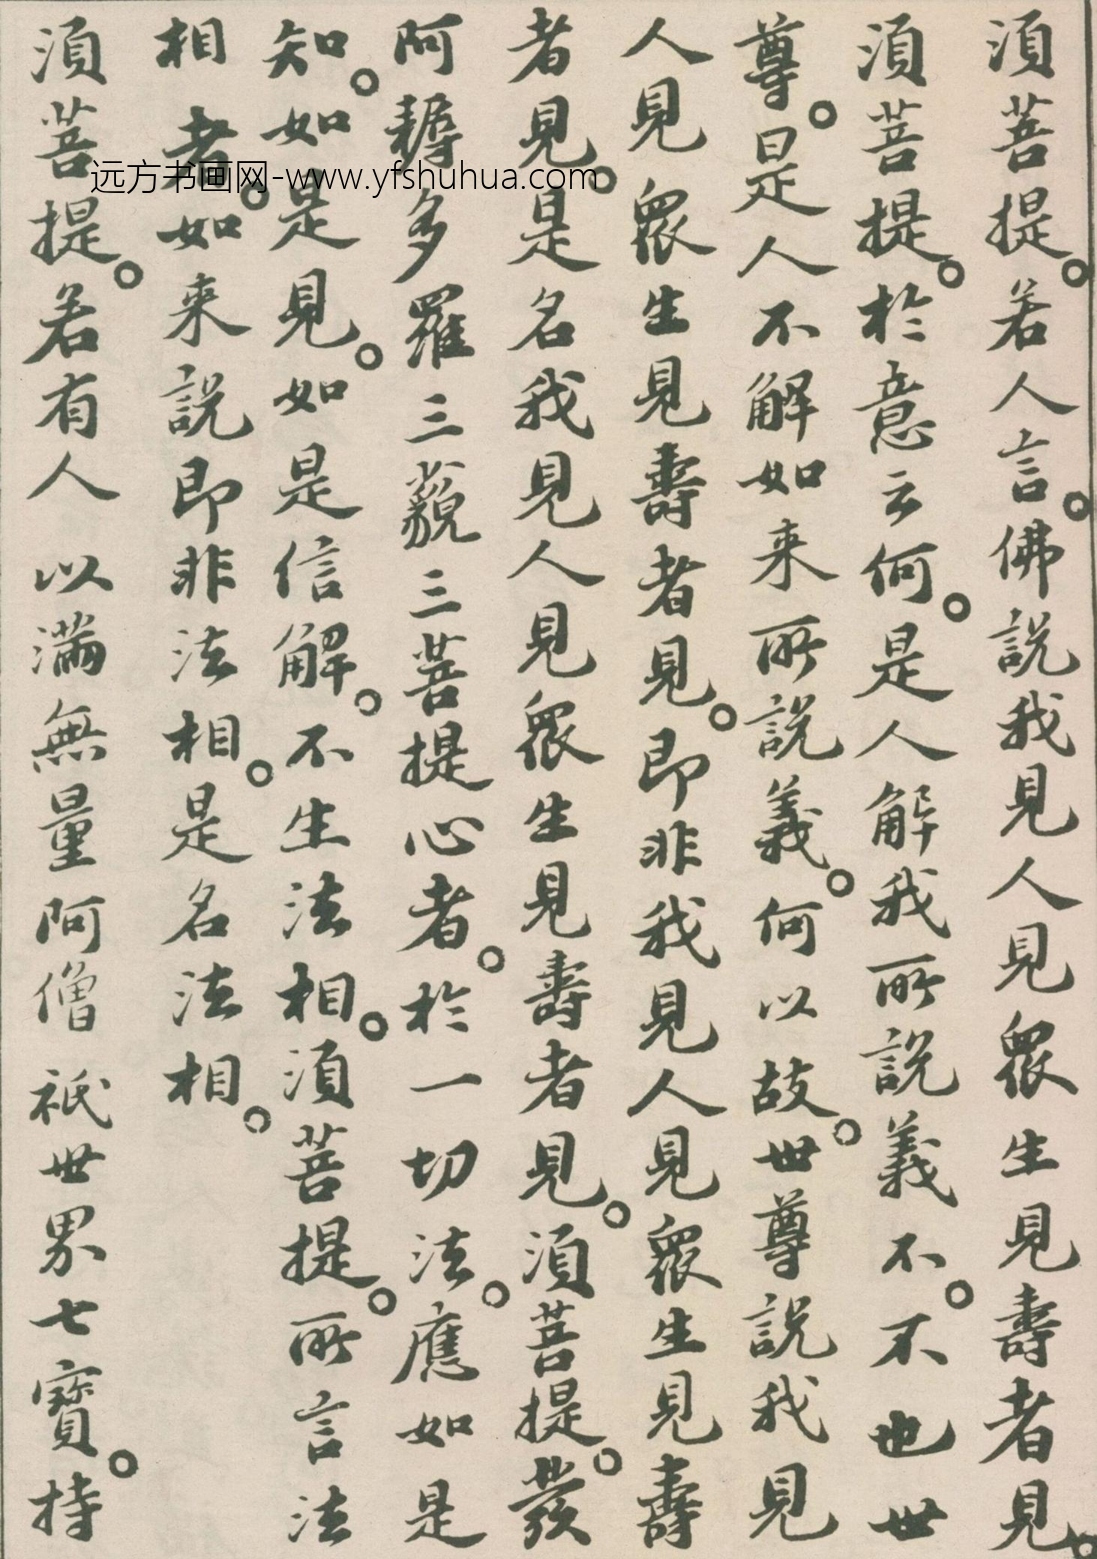 須菩提。若人言。佛說我見人見眾生見壽者見。
須菩提。於意云何。是人解我所說義不。不也世
尊。是人不解如来所說義。何以故。世尊說我見
人見眾生見壽者見。即非我見人見眾生見壽
者見。是名我見人見眾生見壽者見。須菩提。發
阿耨多羅三藐三菩提心者。於一切法。應如是
知。如是見。如是信解。不生法相。須菩提。所言法
相者。如来說即非法相。是名法相。
須菩提。若有人以滿無量阿僧祇世界七寶。持
远方书画网-www.yfshuhua.com